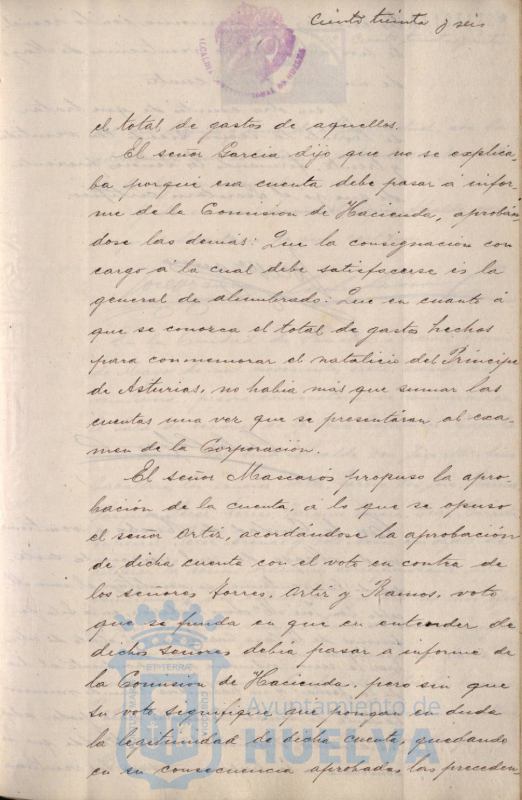 Ciento treinta y seis
el total de gastos de aquellos.
El señor García dijo que no se explica
ba porqué esa cuenta debe pasar á infor-
me de la Comisión de Hacienda, aprobán-
dose las demás: Que la consignación con
cargo á la cual debe satisfacerse es la
general de alumbrado: Que en cuanto á
que se conozca el total de gastos hechos
para conmemorar el natalicio del Príncipe
de Asturias, no había más que sumar las
cuentas una vez que se presentáran al exa-
men de la Corporación.
El señor Mascarós propuso la apro-
bación de la cuenta, a lo que se opuso
el señor Ortiz, acordándose la aprobación
de dicha cuenta con el voto en contra de
los señores Torres, Ortiz y Ramos, voto
que se funda en que en entender de
dichos señores debía pasar a informe de
la Comisión de Hacienda, pero sin que
su voto signifique que pongan en duda
la legitimidad de dicha cuenta, quedando
en su consecuencia aprobadas las preceden-
Ayuntamiento de
HUELVA